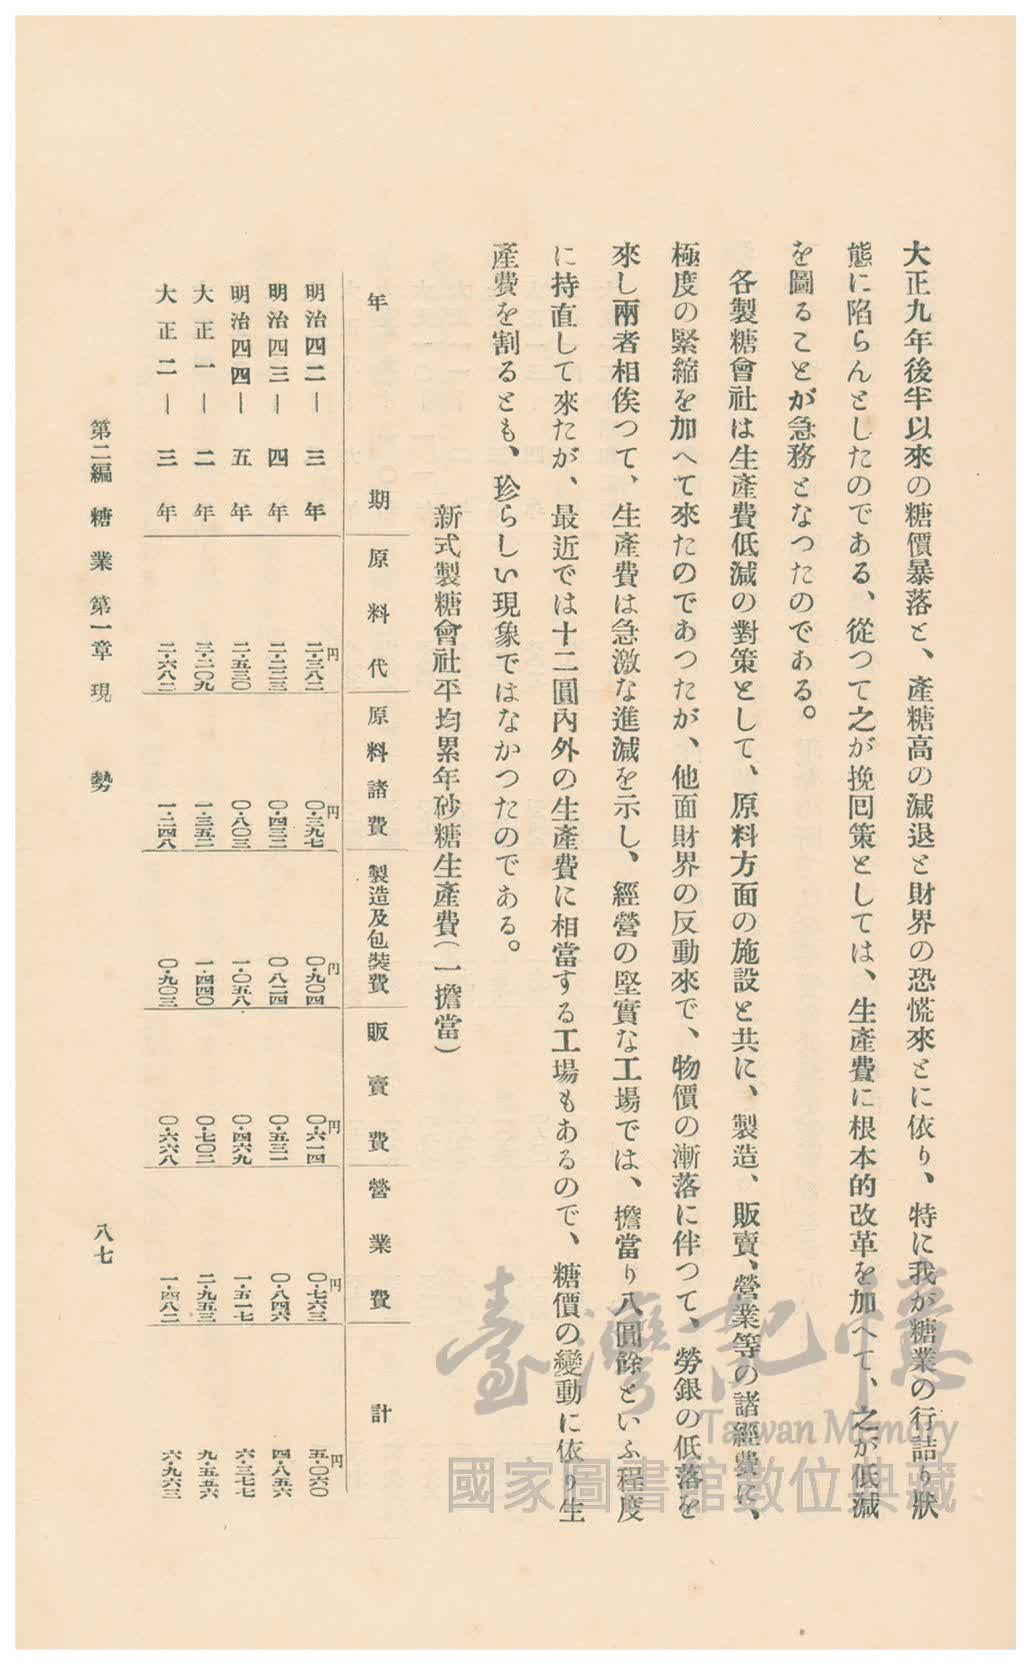 大正九年後半以來の糖價暴落と、產糖高の減退と財界の恐慌來とに依り、特に我が糖業の行詰り狀
態に陷らんとしたのである、從つて之が挽囘策としては、生產費に根本的改革を加へて、之が低減
を圖ることが急務となつたのである。
各製糖會社は生產費低減の對策として、原料方面の施設と共に、製造、販賣、營業等の諸經費に、
極度の緊縮を加へて來たのであつたが、他面財界の反動來で、物價の漸落に伴つて、勞銀の低落を
來し兩者相俟つて、生產費は急激な進減を示し、經營の堅實な工場では、擔當り八圓餘といふ程度
に持直して來たが、最近では十二圓內外の生產費に相當する工場もあるので、糖價の變動に依り生
產費を割るとも、珍らしい現象ではなかつたのである。
新式製糖會社平均累年砂糖生產費(一擔當)
年期 原料代 原料諸費 製造及包裝費 販賣費 營業費 計
明治四二―三年 二・三八二円 〇・三九七円 〇・九〇四円 〇・六一四円 〇・七六三円 五・〇六〇円
明治四三―四年 二・二二三 〇・四三二 〇八二四 〇・五三一 〇・八四六 四・八五六
明治四四―五年 二・五三〇 〇・八〇三 一・〇五八 〇・四六九 一・五一七 六・三七七
大正一―二年 三・二〇九 一・三五二 一・四四〇 〇・七〇二 二・九五三 九・五五六
大正二―三年 二・六八二 一・二四八 〇・九〇三 〇・六六八 一・四八二 六・九六三
第二編 糖業 第一章 現勢
八七
臺灣記憶
Taiwan Memory
國家圖書館數位典藏